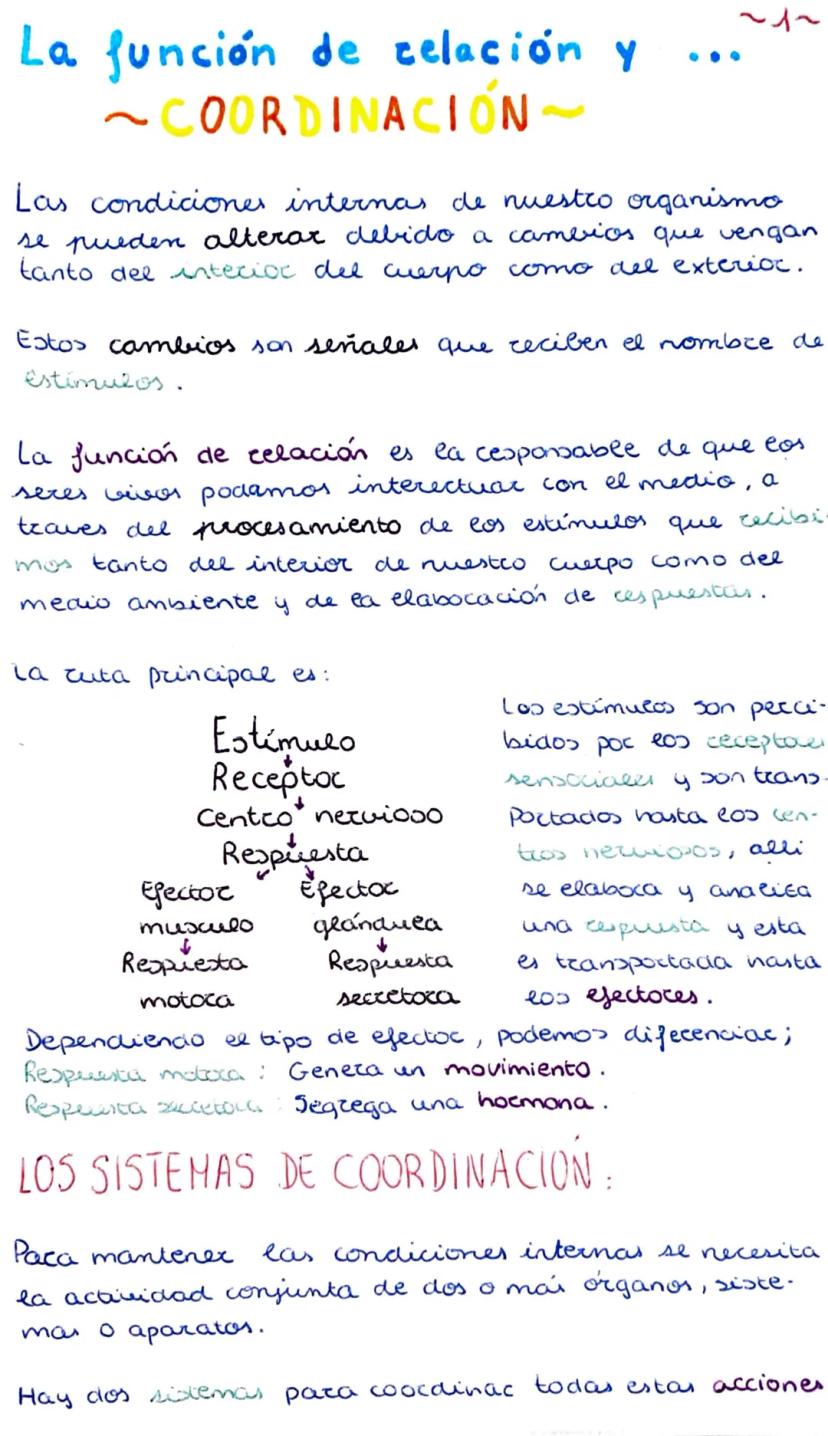 ~1~
La función de relación y ...
~COORDINACIÓN~
Las condiciones internas de nuestro organismo
se pueden alterar debido a cambios que vengan
tanto del interior del cuerpo como del exterior.
Estos cambios son señales que reciben el nombre de
estímulos.
La función de relación es la responsable de que los
seres vivos podamos interectuar con el medio, a
traves del procesamiento de los estímulos que recibi-
mos tanto del interior de nuestro cuerpo como del
medio ambiente y de la elaboración de respuestas.
La ruta principal es:
Estímulo
Receptor
Centro nervioso
Respuesta
Efector Efector
musculo glándula
Respuesta Respuesta
motora secretora
Los estímulos son perci-
bidos por los receptores
sensoriales y son trans-
portados hasta los cen-
tros nerviosos, alli
se elabora y analiza
una respuesta y esta
es transportada hasta
los efectores.
Dependiendo el tipo de efector, podemos diferenciar;
Respuesta motora: Genera un movimiento.
Respuesta secretora: Segrega una hormona.
LOS SISTEMAS DE COORDINACIÓN:
Para mantener las condiciones internas se necesita
la actividad conjunta de dos o más órganos, siste-
mas o aparatos.
Hay dos sistemas para coordinar todas estas acciones